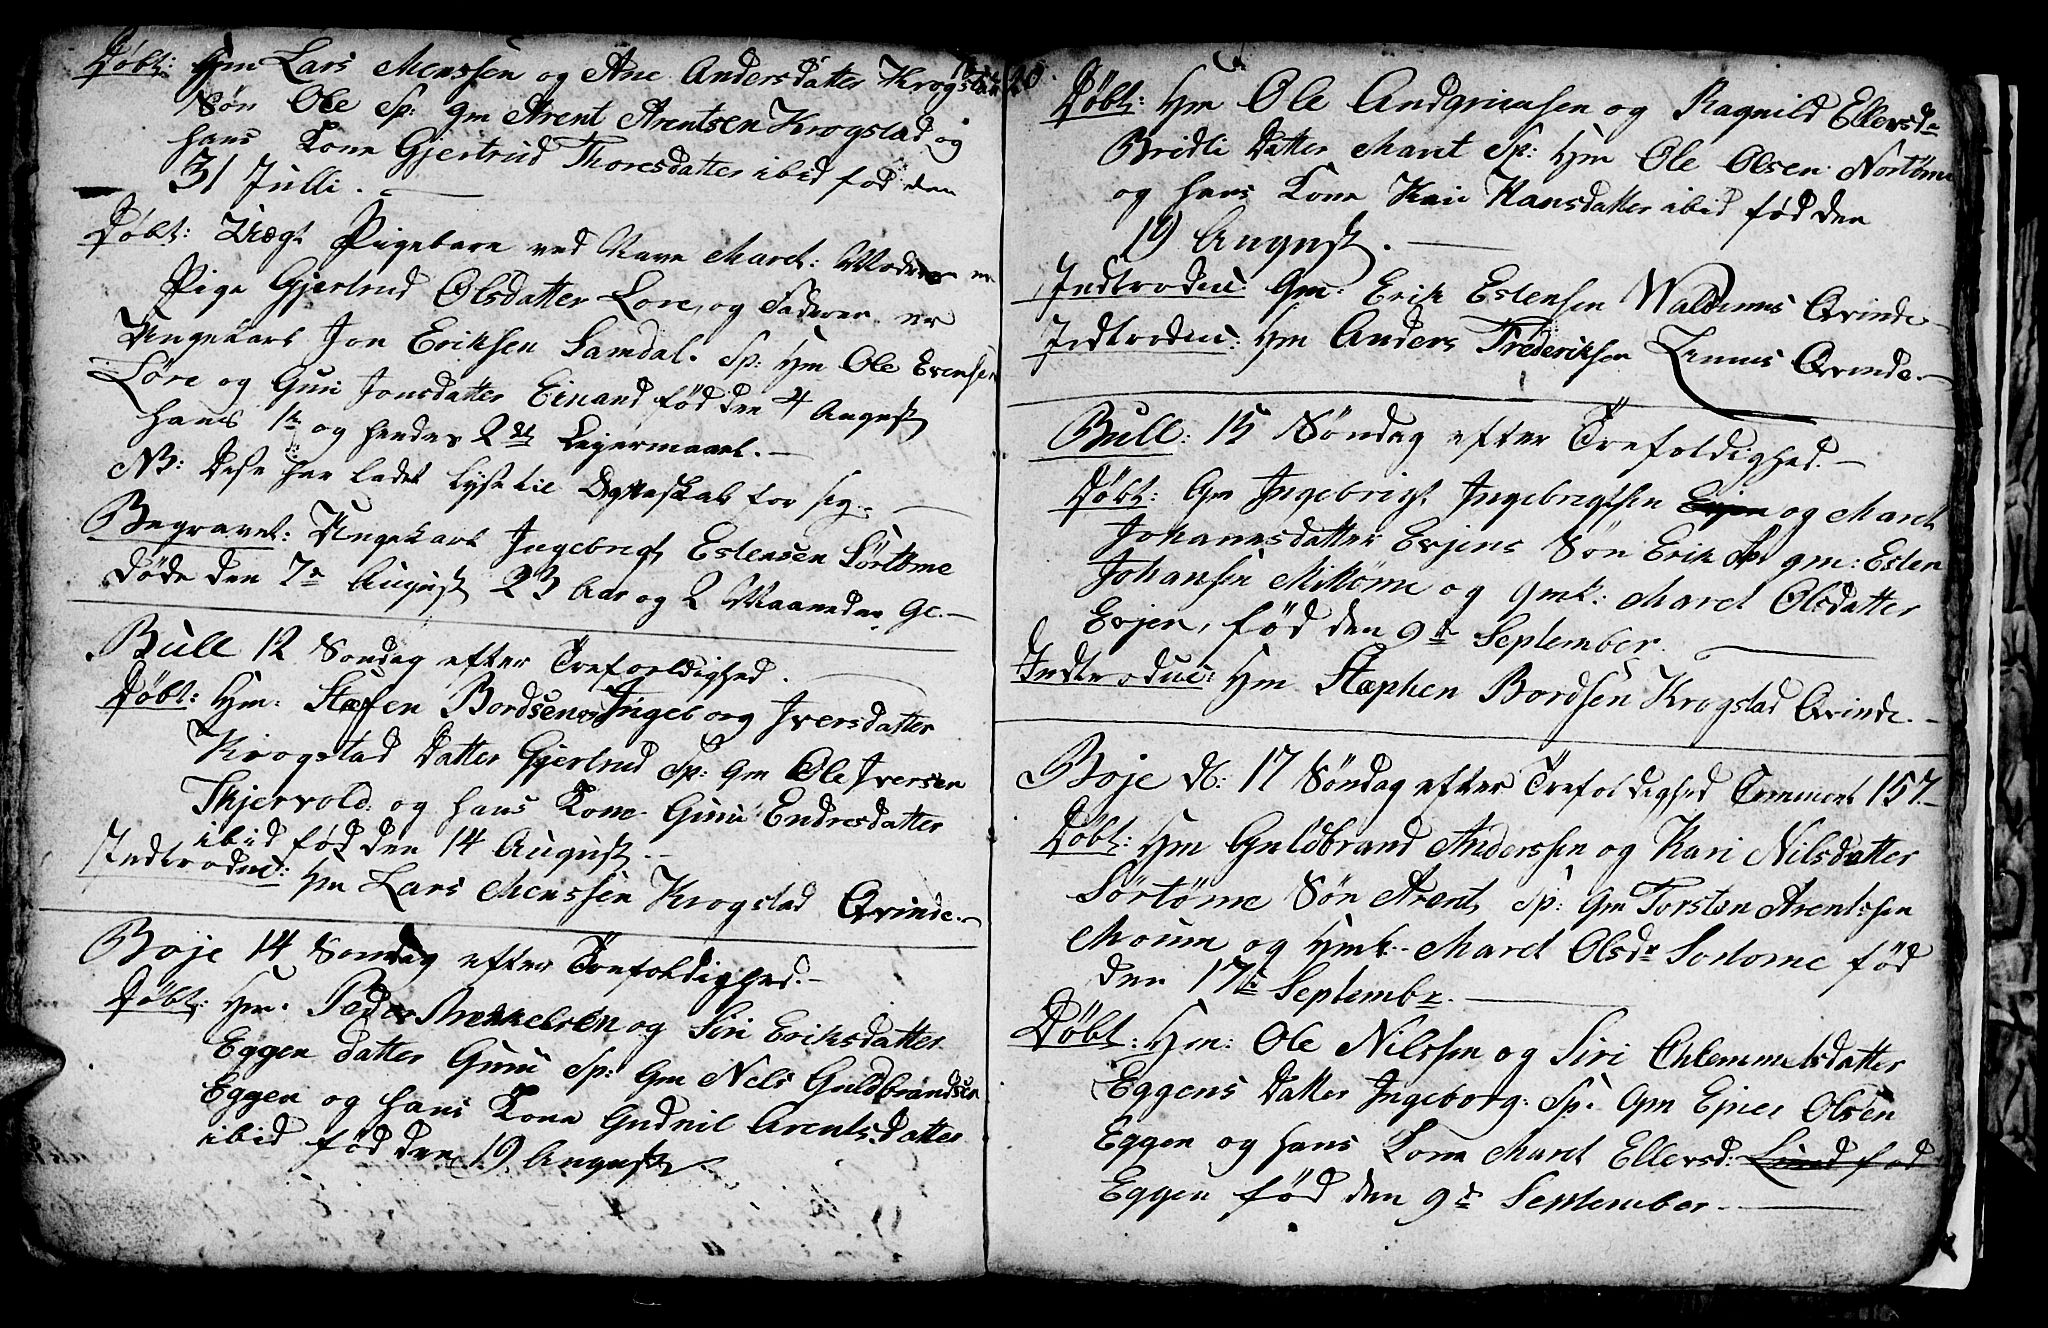 Døbt: Gm Lars Monssen og Ane Andersdatter Krogstad
Søn Ole Sp: Gm Arent Arentsen Krogstad og
hans Kone Gjertrud Thoresdatter ibid fød den
31 Julli.
Døbt: Uægt Pigebarn ved Navn Maret: Moderen er
Pige Gjertrud Olsdatter Løre, og Faderen er
Ungekarl Jon Eriksen Samdal. Sp: Hm Ole Evensen
Løre og Guri Jonsdatter Einand fød den 4 August
hans 1te og hendes 2det Leyermaael.
NB: Disse har ladet lyse til Egteskab for sig.
Begravet: Ungekarl Ingebrigt Estensen Sørtøme
døde den 7de August 23 Aar og 2 Maaneder gl.
Bull 12 Søndag efter Trefoeldighed.
Døbt: Hm: Stæfen Bordsen og Ingeborg Iversdatter
Krogstad Datter Gjertrud Sp: Gm Ole Iversen
Skjervold: og hans Kone Guru Endresdatter
ibid fød den 14 August.
Indtroduc: Hm Lars Monssen Krogstad Qvinde.
Boje 14 Søndag efter Trefoldighed.
Døbt: Hm: Peder Mekkelsen og Siri Eriksdatter
Eggen Datter Guru Sp: Gm Nels Guldbrandsen
Eggen og hans Kone Gudnil Arentsdatter
ibid fød den 19 August
20.
Døbt: Hm Ole Andgrimsen og Ragnild Ellersdr
Bridli Datter Marit Sp: Hm Ole Olsen Nortøme
og hans Kone Kari Hansdatter ibid fød den
19 August.
Indtroduc: Gm: Erik Estensen Waldennes Qvinde
Indtroduc: Hm Anders Frederiksen Qvinde.
Bull: 15 Søndag efter Trefoldighed.
Døbt: Gm Ingebrigt Ingebrigtsen Evjen og Maret
Johanesdatter Evjens Søn Erik Sp: gm: Esten
Johansen Mittøme og Gmk: Maret Olsdatter
Evjen, fød den 9de September.
Indtroduc: Hm Stæphen Bordsen Krogstad Qvinde.
Boje d: 17 Søndag efter Trefoldighed 157
Døbt: Hm Guldbrand Anderssen og Kari Nilsdatter
Sørtøme Søn Arent, Sp: Gm Torsten Arentssen
Moum og Hmk: Maret Olsdr Sørtøme fød
den 17de Septembr.
Døbt: Hm: Ole Nilssen og Siri Chlemmetsdatter
Eggens Datter Ingeborg: Sp: Gm Ejner Olsen
Eggen og hans Kone Maret Ellersd: Lund fød
Eggen fød den 9de September.